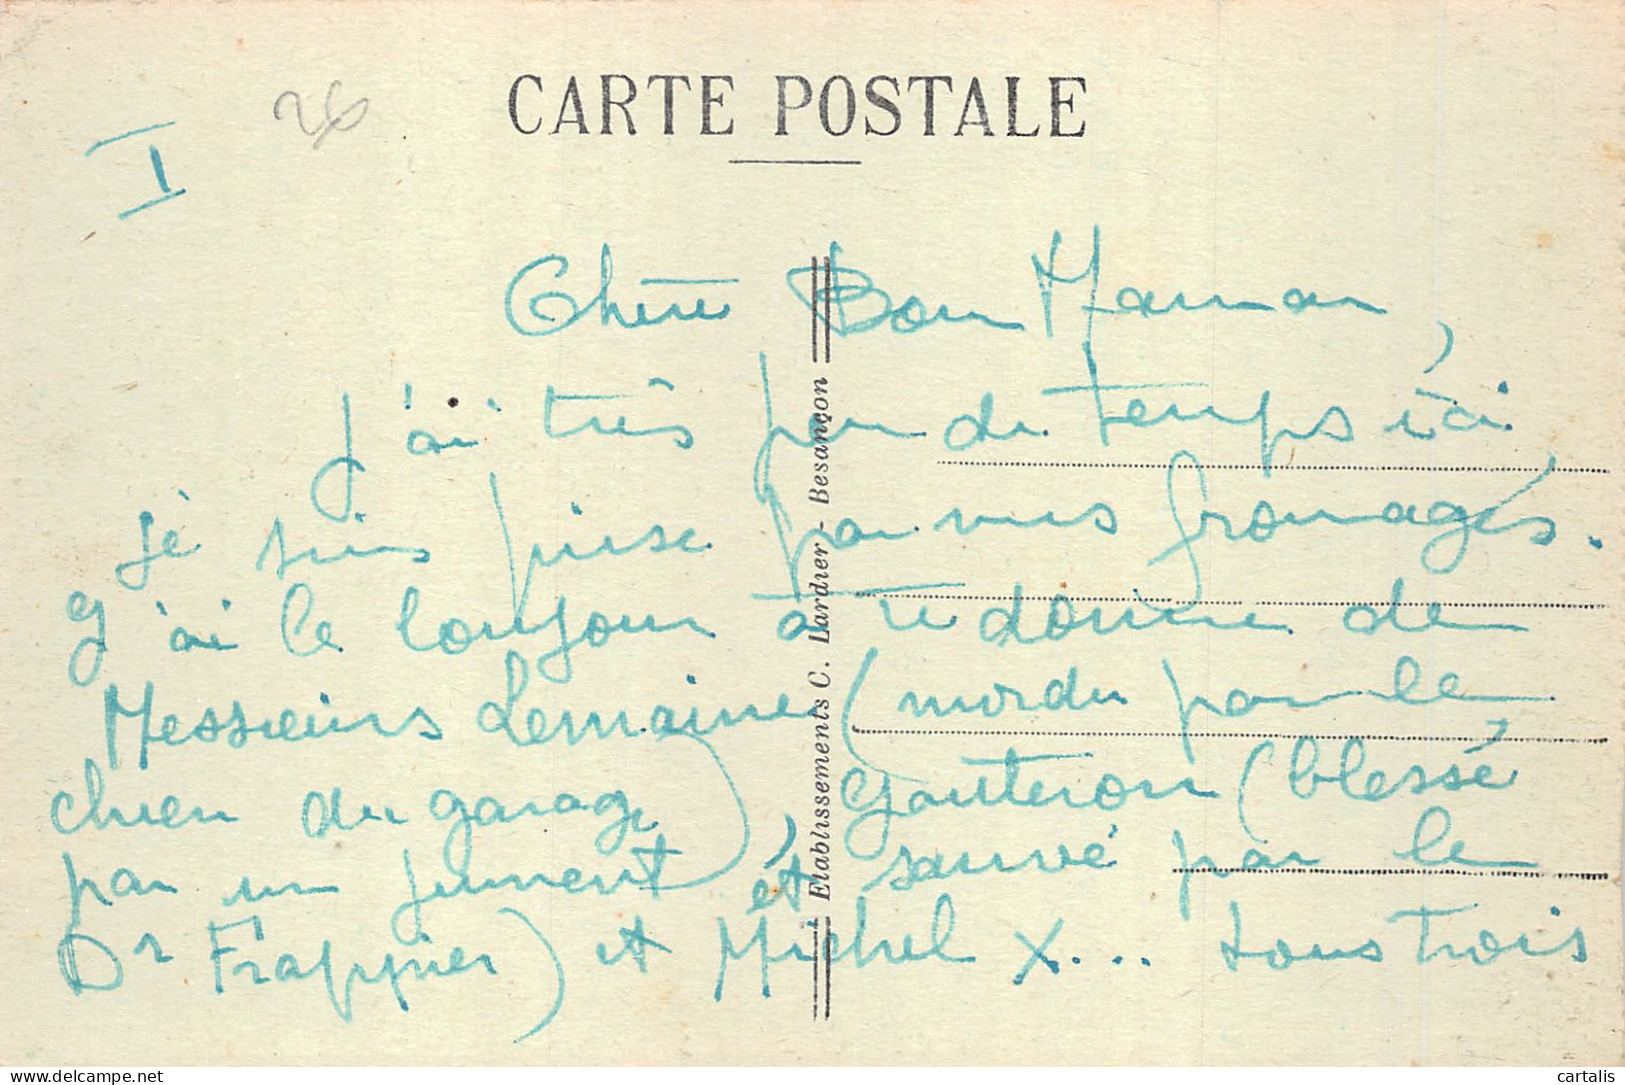 CARTE POSTALE
26
I
Chère Bon Maman,
J'ai très peu de temps ici,
je suis prise par mes fromages.
J'ai le bonjour à te donner de
Messieurs Lemaine (mordu par le
chien du garage), Gauteron (blessé
par un jument et sauvé par le
Dr Frappier) et Michel X... tous trois
Etablissements C. Lardier - Besançon
cartalis